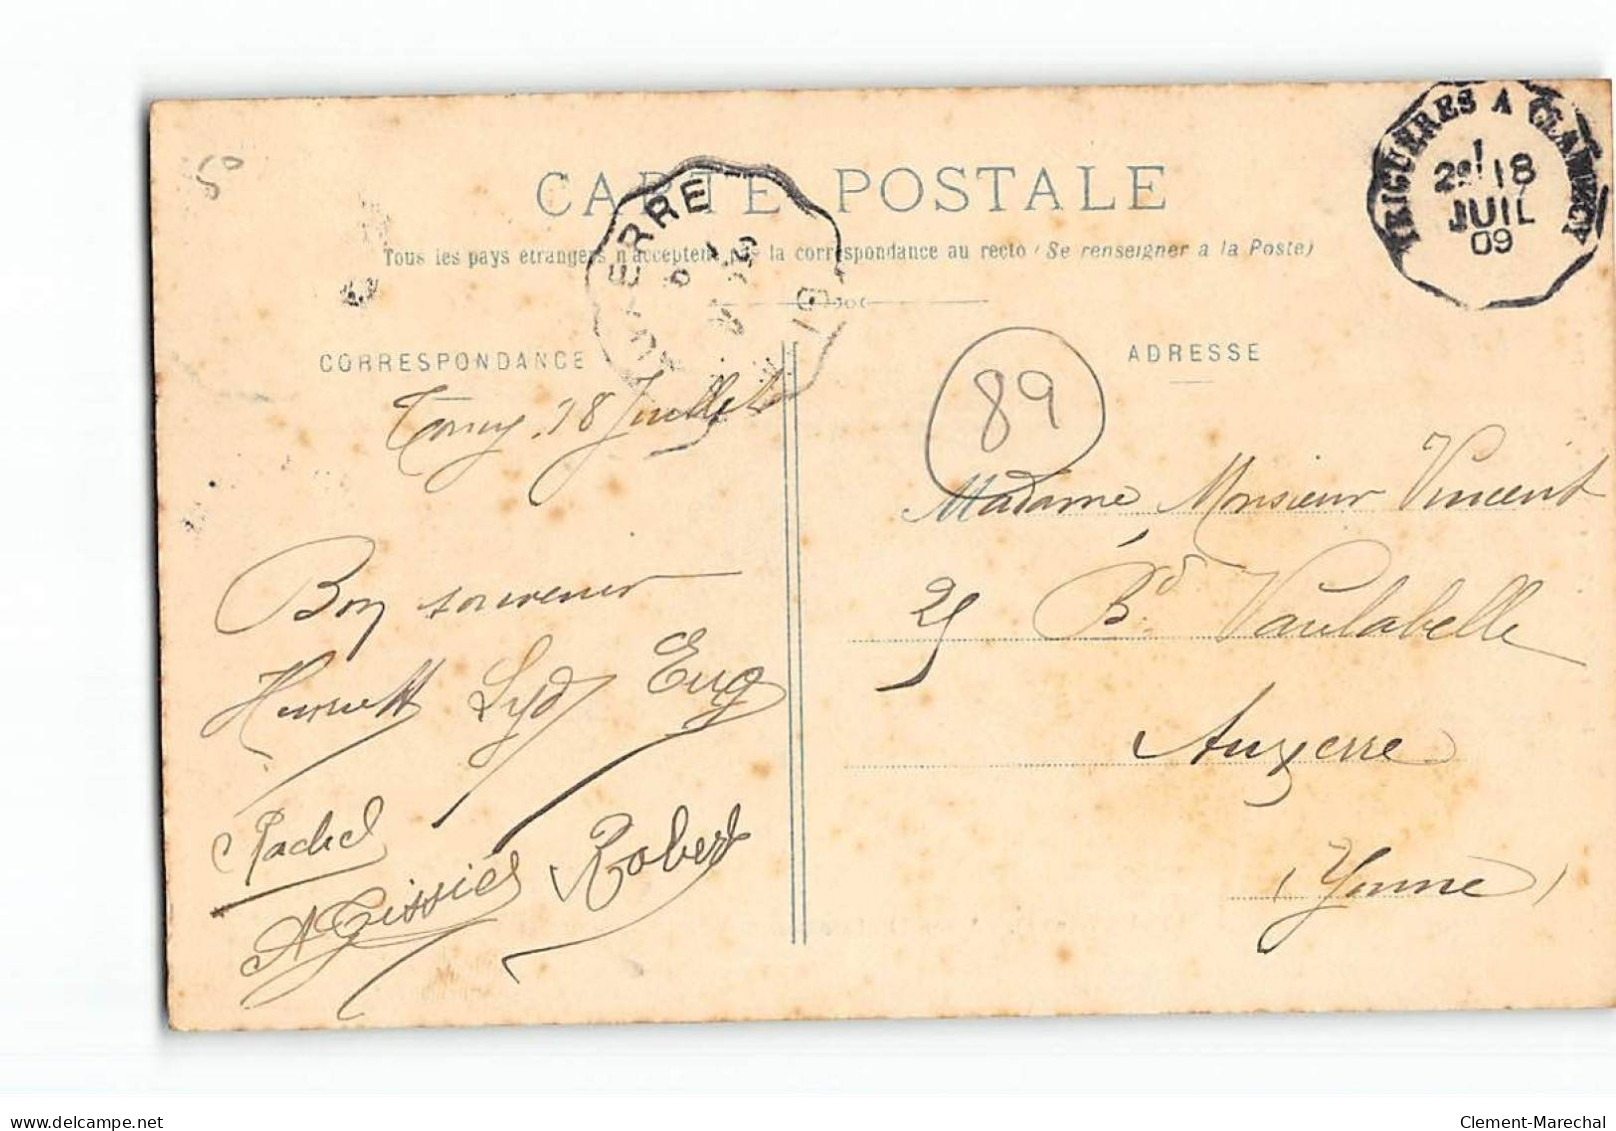 50
CARTE POSTALE
Tous les pays étrangers n'acceptent pas la correspondance au recto (Se renseigner à la Poste)
TRIGUERES A CLAMECY
1
2E 18
JUIL
09
AUXERRE
CORRESPONDANCE
ADRESSE
89
18 Juillet
Bon souvenir
Henriett Lyd Eug
Rachel
Robert
Madame Monsieur Vincent
25 Bd Vaulabelle
Auxerre
(Yonne)
Clement-Marechal
delcampe.net